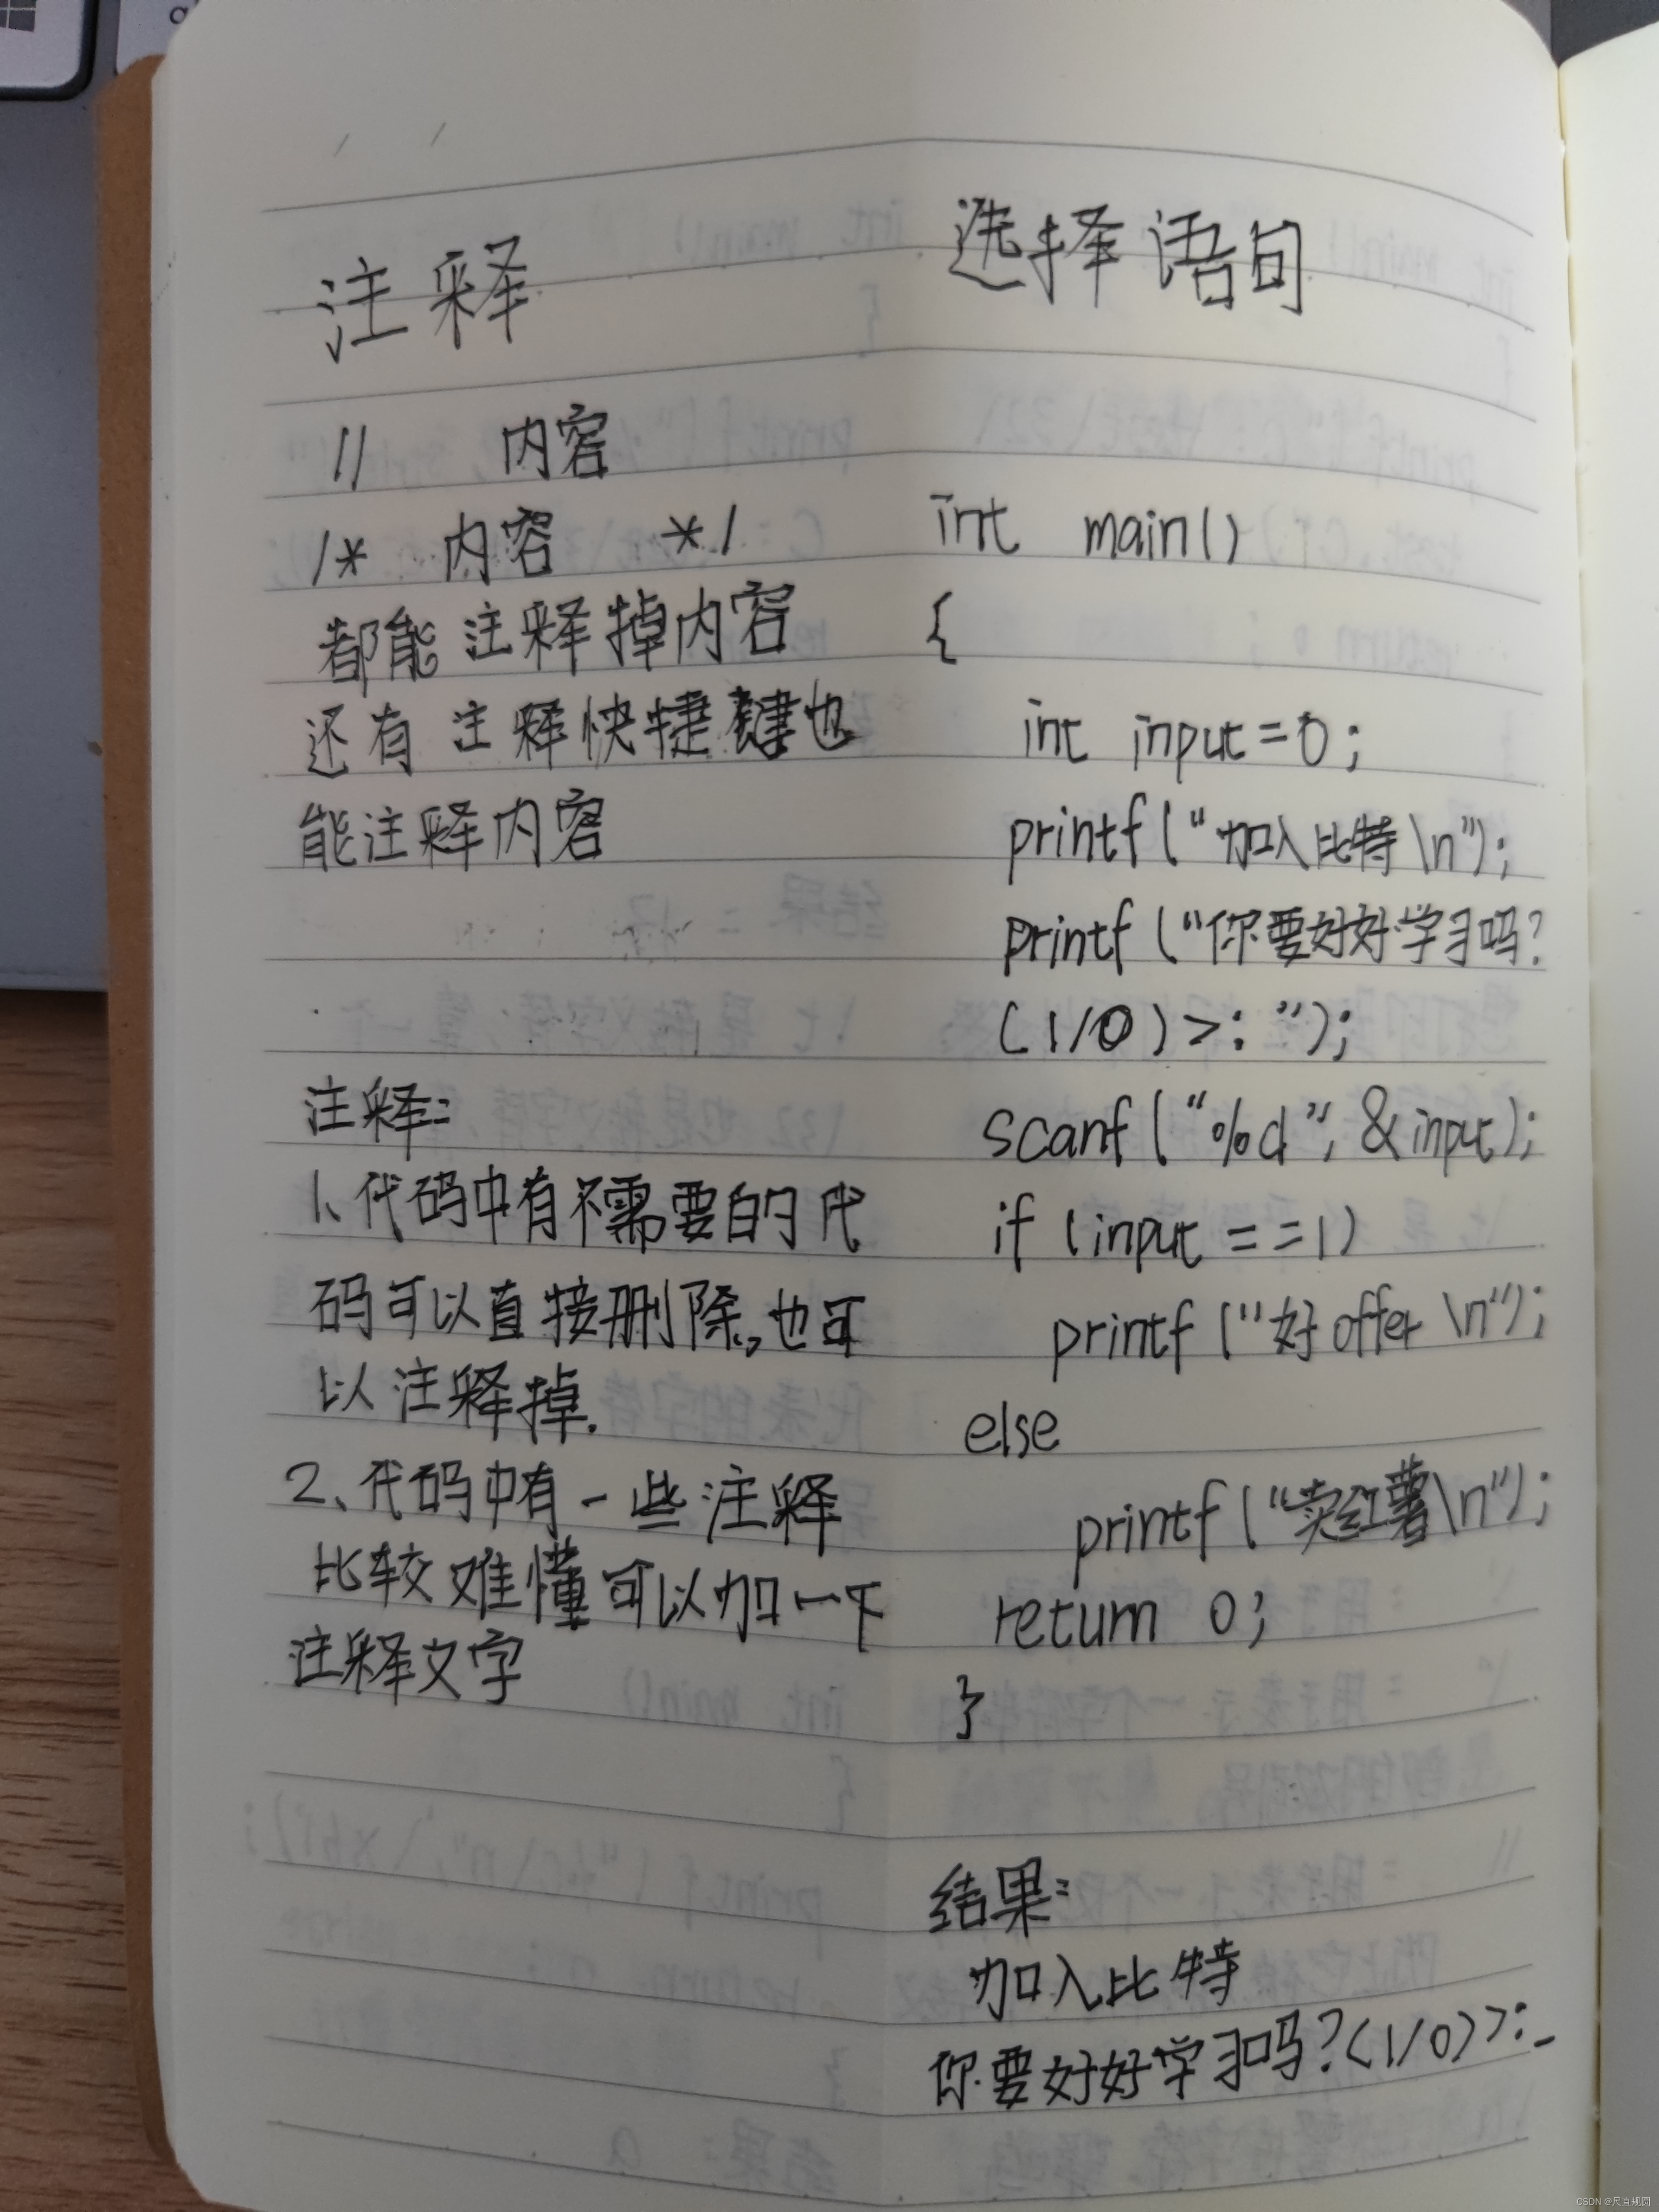 注释
//  内容
/*  内容  */
都能注释掉内容
还有注释快捷键也
能注释内容
注释:
1、代码中有不需要的代
码可以直接删除,也可
以注释掉.
2、代码中有一些注释
比较难懂可以加一下
注释文字
选择语句
int main()
{
int input=0;
printf("加入比特\n");
printf("你要好好学习吗?
(1/0)>:");
scanf("%d",&input);
if (input ==1)
printf("好offer\n");
else
printf("卖红薯\n");
return 0;
}
结果:
加入比特
你要好好学习吗?(1/0)>:_
CSDN @尺直规圆